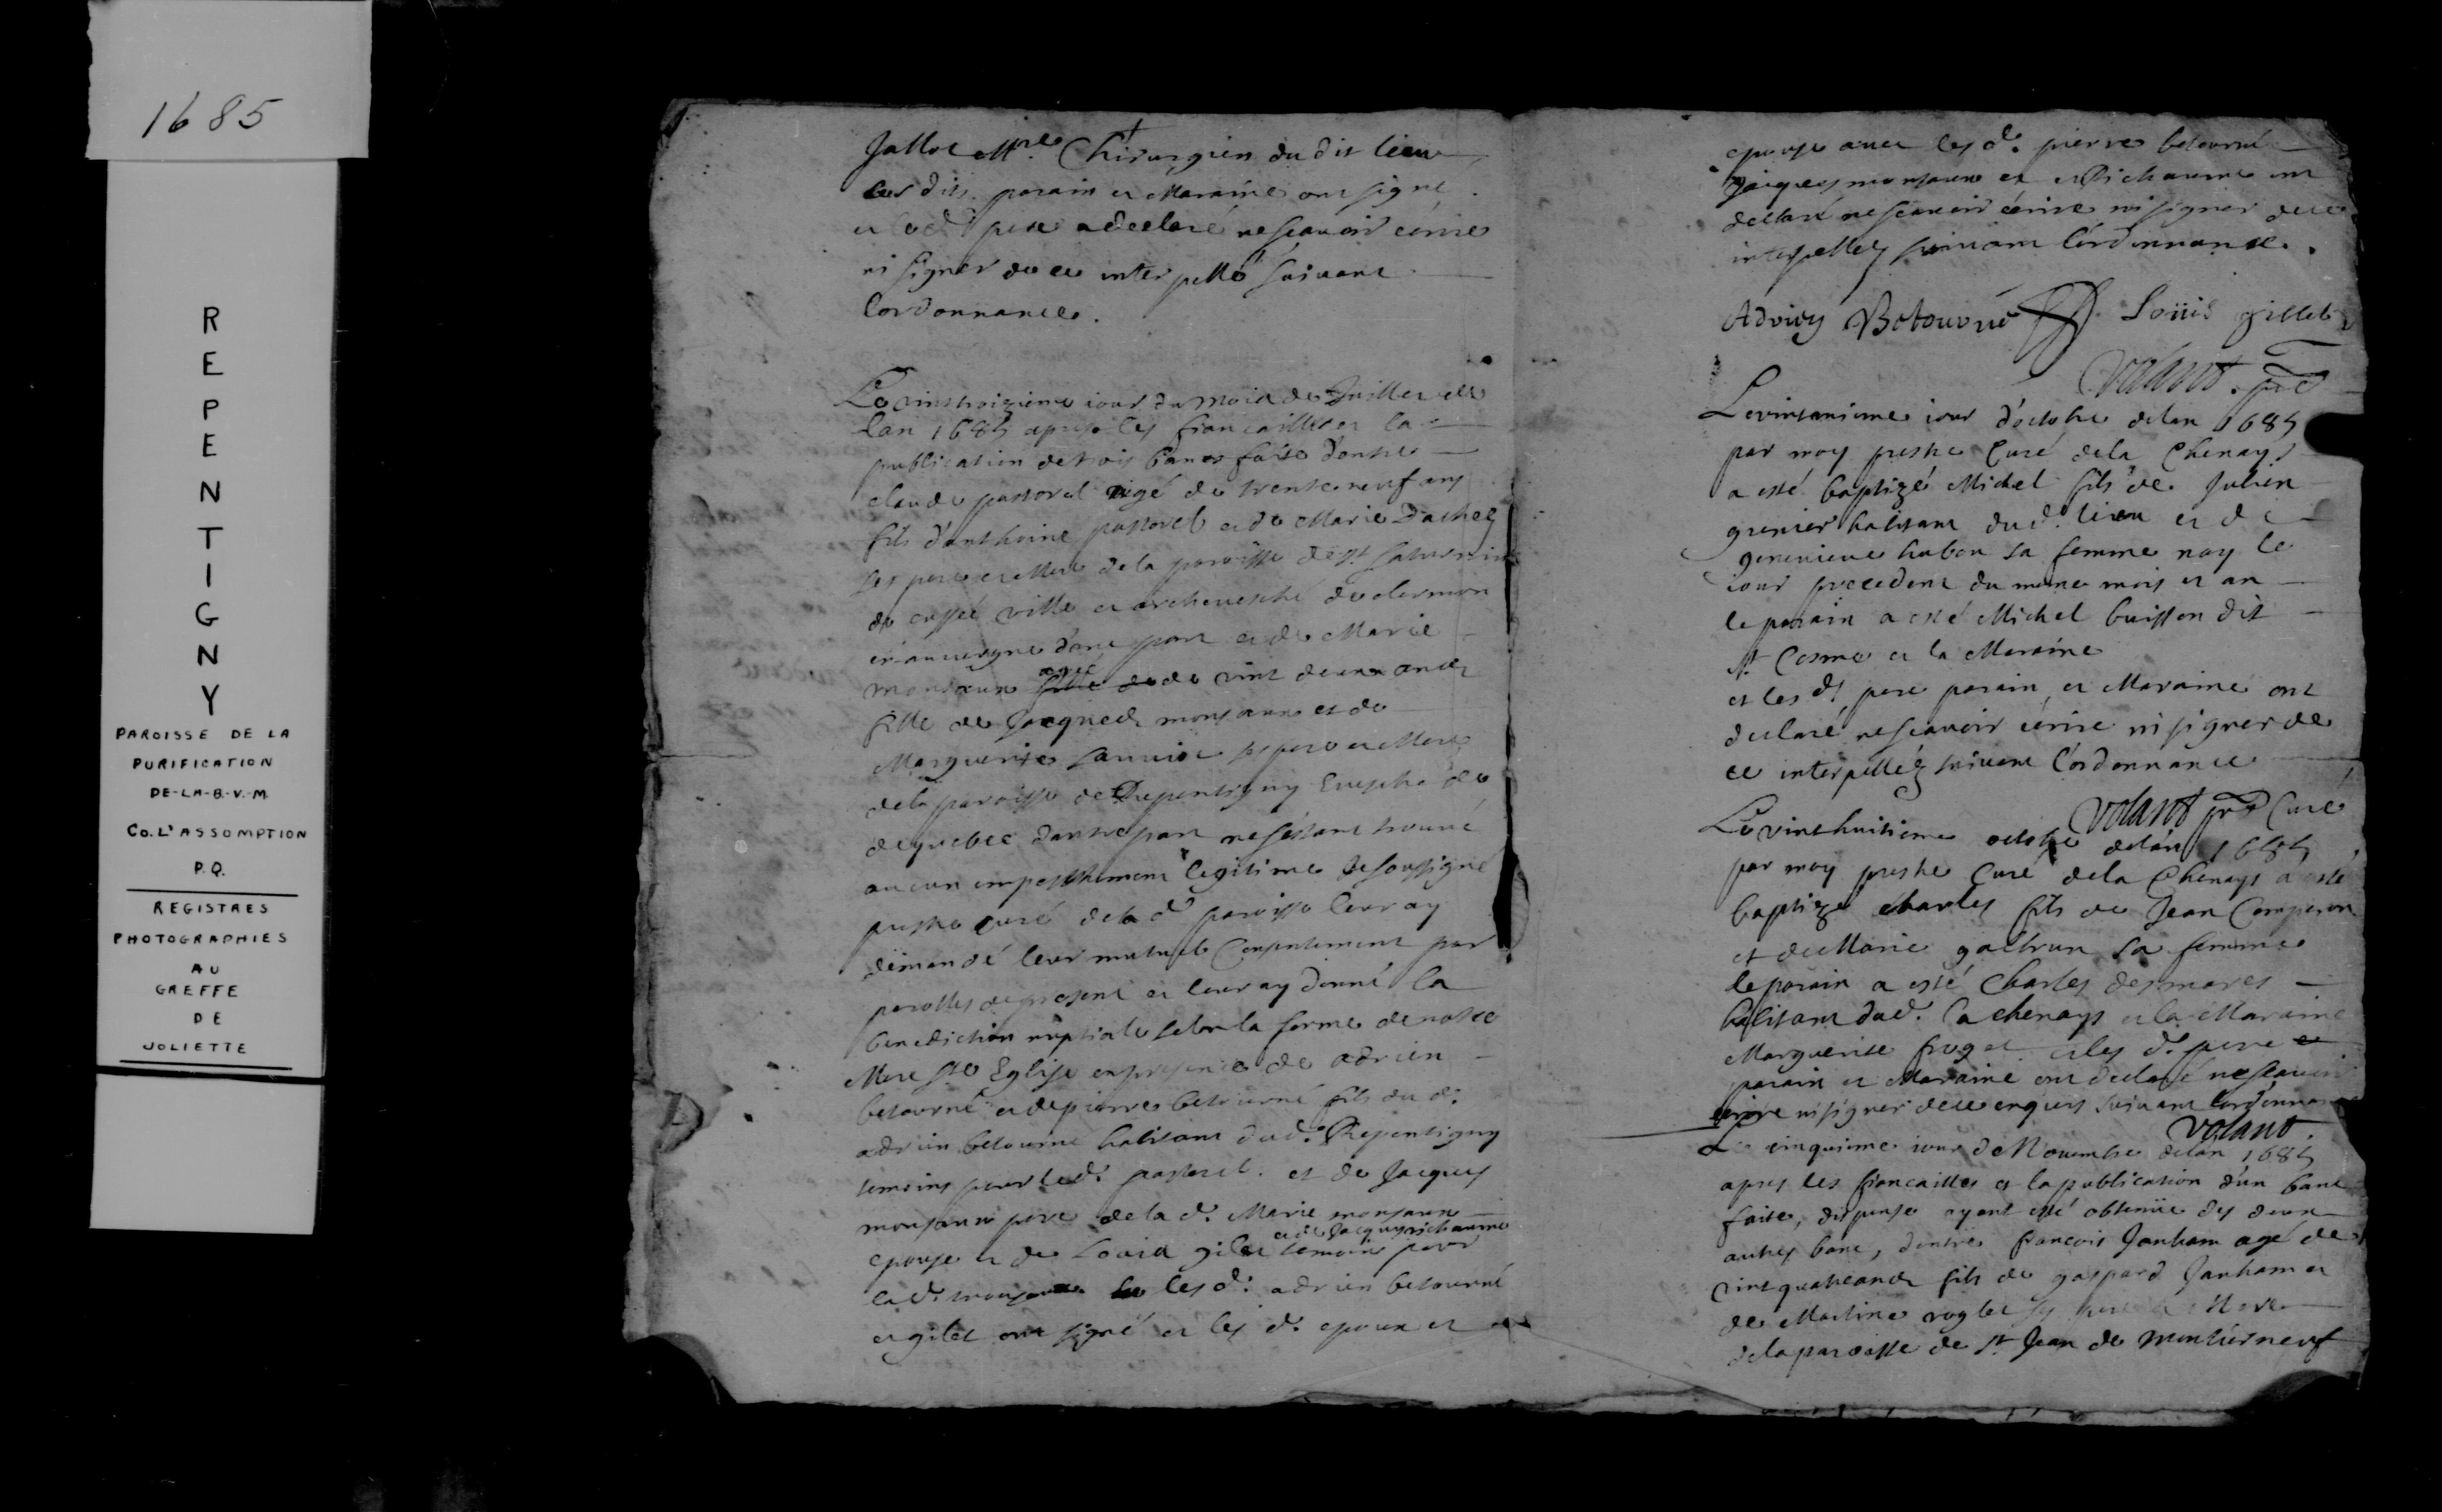 1685
REPENTIGNY
PAROISSE DE LA
PURIFICATION
DE-LA-B-V-M
Co. L'ASSOMPTION
P.Q.
REGISTRES
PHOTOGRAPHIES
AU
GREFFE
DE
JOLIETTE
Jallot Chirurgien du dit lieu
les dits parain et Maraine ont signé
et led pere a declaré ne scavoir écrire
ni signer de ce interpellé suivant
l'ordonnance.
Le vint troizieme iour du mois de Juillet de
lan 1685 apres les fiancailles et la
publication de trois bans faite dentre
claude pastorel aigé de trente neuf ans
fils d'anthoine pastorel et de Marie
ses pere et Mere de la paroisse de st. saturnin
de ville et archevesché de clermon
en auvergne d'une part et de Marie
monsaux agée de vint deux ans
fille de Jacques monsaux et de
Marguerite sauviot ses pere et Mere
de la paroisse de Repentigny Evesché de
de quebec d'autre part ne s'estant trouvé
aucun empeschement legitime Je soussigné
prestre curé de la d. paroisse leur ay
demandé leur mutuel consentement par
parolles de present et leur ay donné la
benediction nuptiale selon la forme de nostre
Mere ste Eglise en presence de adrien
betourné et de pierre betourné fils du d.
adrien betourne habitant dud. Repentigny
temoins pour led. pastorel. et de Jacques
monsaux pere de la d. Marie monsaux
et de Jacques richaume
epouse et de Louis gilet temoins pour
lad. monsaux les d. adrien betourné
et gilet ont signé et les d. epoux et
epouse avec les d. pierre betourné
Jacques monsaux et Richaume ont
declaré ne scavoir écrire ni signer de ce
interpellez suivant l'ordonnance.
Adrien Betourné Louis gillet
Volant. pre
Le vint iour d'octobre de lan 1685
par moy prestre Curé de la Chenays
a esté baptizé Michel fils de Julien
grenier habitant du d. lieu et de
genevieve hubou sa femme nay le
iour precedent du mesme mois et an
le parain a esté Michel buisson dit
st Cosme et la Maraine
et les d. pere parain et Maraine ont
declaré ne scavoir écrire ni signer de
ce interpellez suivant l'ordonnance
Volant pre Curé
Le vint huitieme octobre de lan 1685
par moy prestre Curé de la Chenays a esté
baptizé charles fils de Jean
et de Marie sa femme
le parain a esté Charles desmares
habitant dud. la chenays et la Maraine
Marguerite et les d. pere
parain et Maraine ont declaré ne scavoir
écrire ni signer de ce enquis suivant l'ordonnan
Volant.
Le cinquieme iour de Novembre de lan 1685
apres les fiancailles et la publication d'un banc
faite, dispense ayant esté obtenüe des deux
autres banc, dentre francois Janham agé de
vint quatre ans fils de gaspard Janham et
de Martine roglet ses pere et Mere
de la paroisse de st Jean de montierneuf